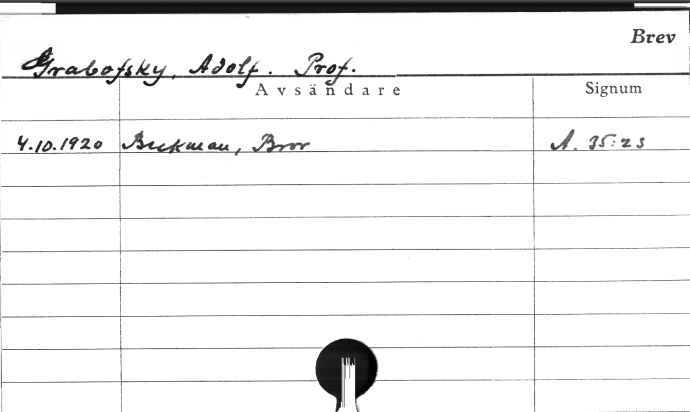 Brev
Grabofsky, Adolf. Prof.
Avsändare Signum
4.10.1920 Beckman, Bror A. 35:23